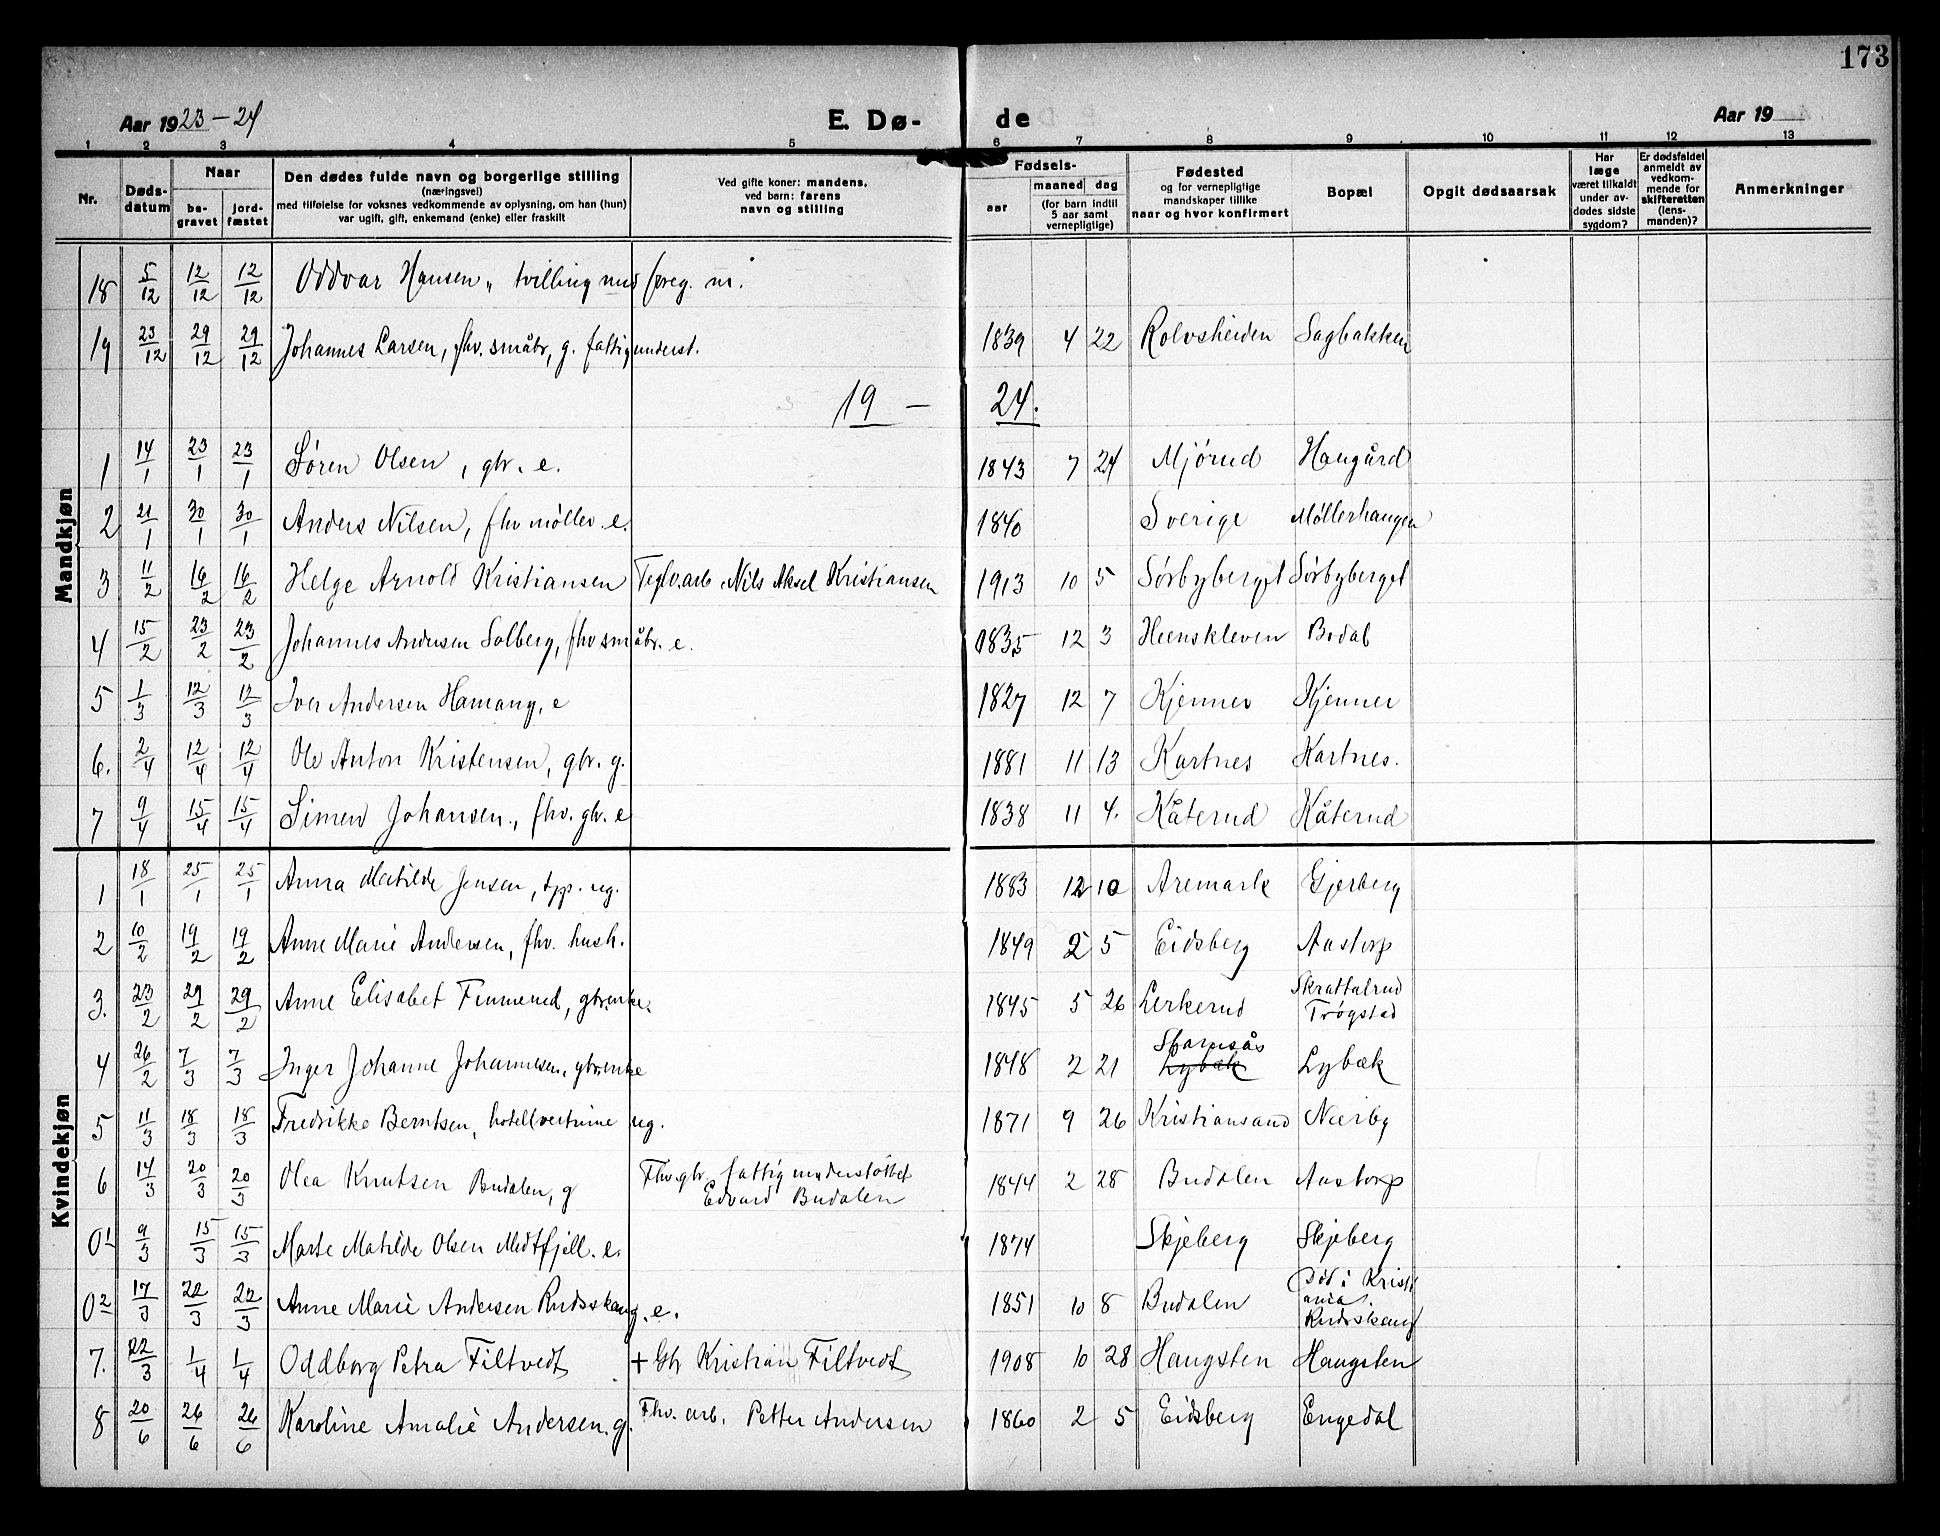 173
Aar 1923-24 E. Dø- de Aar 19
1 2 3 4 5 6 7 8 9 10 11 12 13
Nr. Døds-datum Naar be-gravet jord-fæstet Den dødes fulde navn og borgerlige stilling (næringsvei) med tilføielse for voksnes vedkommende av oplysning, om han (hun) var ugift, gift, enkemand (enke) eller fraskilt Ved gifte koner: mandens, ved barn: farens navn og stilling Fødsels- aar maaned dag (for barn indtil 5 aar samt vernepligtige) Fødested og for vernepligtige mandskaper tillike naar og hvor konfirmert Bopæl Opgit dødsaarsak Har læge været tilkaldt under av-dødes sidste sygdom? Er dødsfaldet anmeldt av vedkom-mende for skifteretten (lens-manden)? Anmerkninger
Mandkjøn
18 5/12 12/12 12/12 Oddvar Hansen „ tvilling med foreg. m.
19 23/12 29/12 29/12 Johannes Larsen, fhv. småbr, g. fattigunderst. 1839 4 22 Rolvsheiden Sagbakken
19 - 24.
1 14/1 23/1 23/1 Søren Olsen, gbr. e. 1843 7 24 Mjørud Haugård
2 21/1 30/1 30/1 Anders Nilsen, fhv møller. e. 1840 Sverige Møllerhaugen
3 11/2 16/2 16/2 Helge Arnold Kristiansen Teglv.arb. Nils Aksel Kristiansen 1913 10 5 Sørbyberget Sørbyberget
4 15/2 23/2 23/2 Johannes Andersen Solberg, fhv småbr. e. 1835 12 3 Heenskleven Bodal
5 1/3 12/3 12/3 Iver Andersen Hamang, e 1827 12 7 Kjenner Kjenner
6. 2/4 12/4 12/4 Ole Anton Kristensen, gbr. g. 1881 11 13 Kartnes Kartnes.
7 9/4 15/4 15/4 Simen Johansen., fhv. gbr. e 1838 11 4. Kåterud Kåterud
Kvindekjøn
1 18/1 25/1 25/1 Anna Matilde Jensen, ug. 1883 12 10 Aremark Gjerberg
2 10/2 19/2 19/2 Anne Marie Andersen, fhv. hush. 1849 2 5 Eidsberg Aastorp
3. 23/2 29/2 29/2 Anne Elisabet gbrenke. 1845 5 26 Lerkerud Skrattalrud
Trøgstad
4 26/2 7/3 7/3 Inger Johanne Johannesen, gbrenke 1848 2 21 Lybæk Lybæk
5 11/3 18/3 18/3 Fredrikke Berntsen, hotellvertinne ug. 1871 9 26 Kristiansand Nærby
6 14/3 20/3 20/3 Olea Knutsen Budalen, g Fhv. gbr. fattigunderstøttet
Edvard Budalen 1844 2 28 Budalen Aastorp
01 9/3 15/3 15/3 Marte Matilde Olsen Midtfjell. e. 1874 Skjeberg Skjeberg
02 17/3 22/3 22/3 Anne Marie Andersen Rudsskaug. e. 1851 10 8 Budalen Død i Kristi
ania.
Rudsskaug
7. 22/3 1/4 1/4 Oddborg Petra Filtvedt + Gbr Kristian Filtvedt 1908 10 28 Haugsten Haugsten
8 20/6 26/6 26/6 Karoline Amalie Andersen. g. Fhv. arb. Petter Andersen 1860 2 5 Eidsberg Engedal